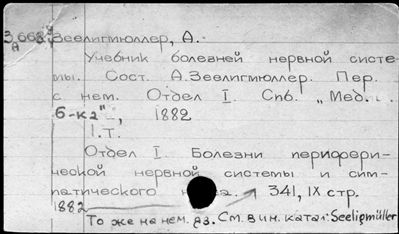 3668 Зеелигмюллер, А.
А
Учебник болезней нервной систе-
мы. Сост. А.Зеелигмюллер. Пер.
с нем. Отдел I. Спб. „Мед.
б-ка", 1882
1.т.
Отдел I. Болезни перифери-
ческой нервной системы и сим-
патического 341, IX стр.
1882
То же на нем. яз. См. в ин. катал. Seeligmüller